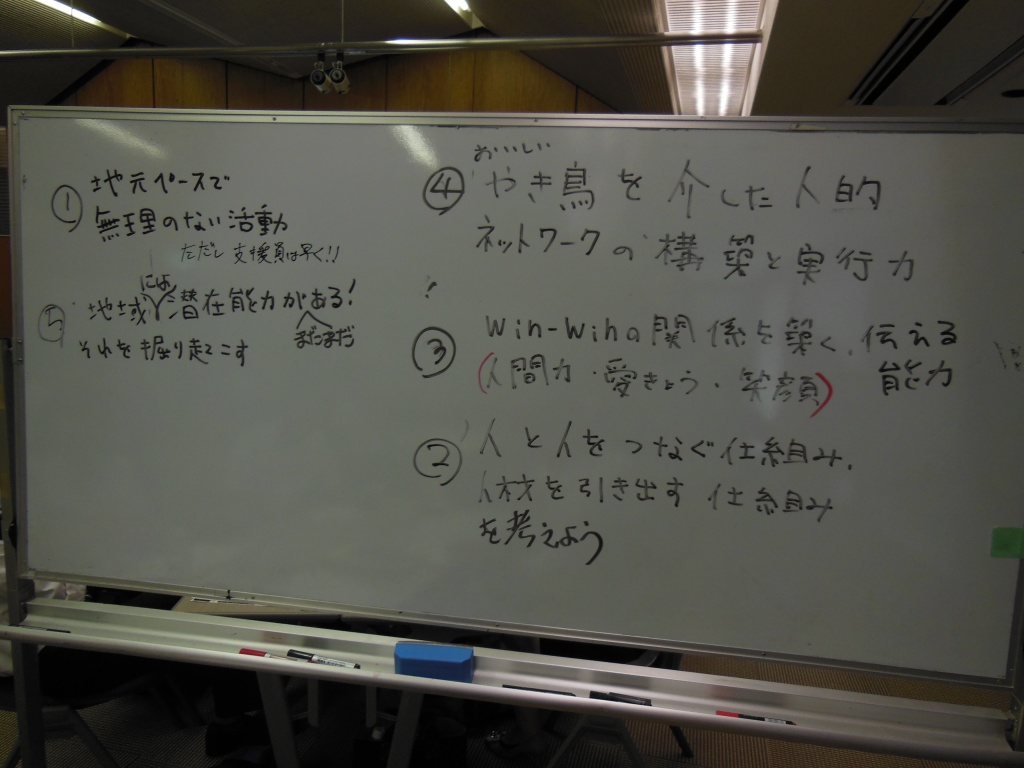 ① 地元ペースで
無理のない活動
ただし 支援員は早く!!
⑤ 地域には潜在能力がまだまだある!
それを掘り起こす
④ おいしいやき鳥を介した人的
ネットワークの構築と実行力
③ Win-Winの関係を築く、伝える
(人間力・愛きょう・笑顔) 能力
② 人と人をつなぐ仕組み、
人材を引き出す 仕組み
を考えよう